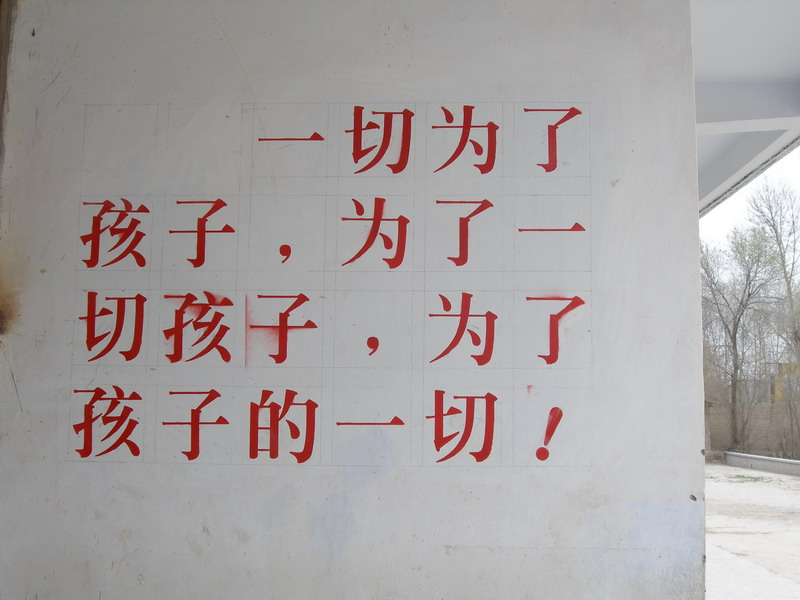 一切为了
孩子，为了一
切孩子，为了
孩子的一切！